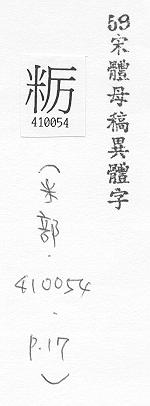 59宋體母稿異體字
粝
410054
(米部.
410054
.
P.17
)